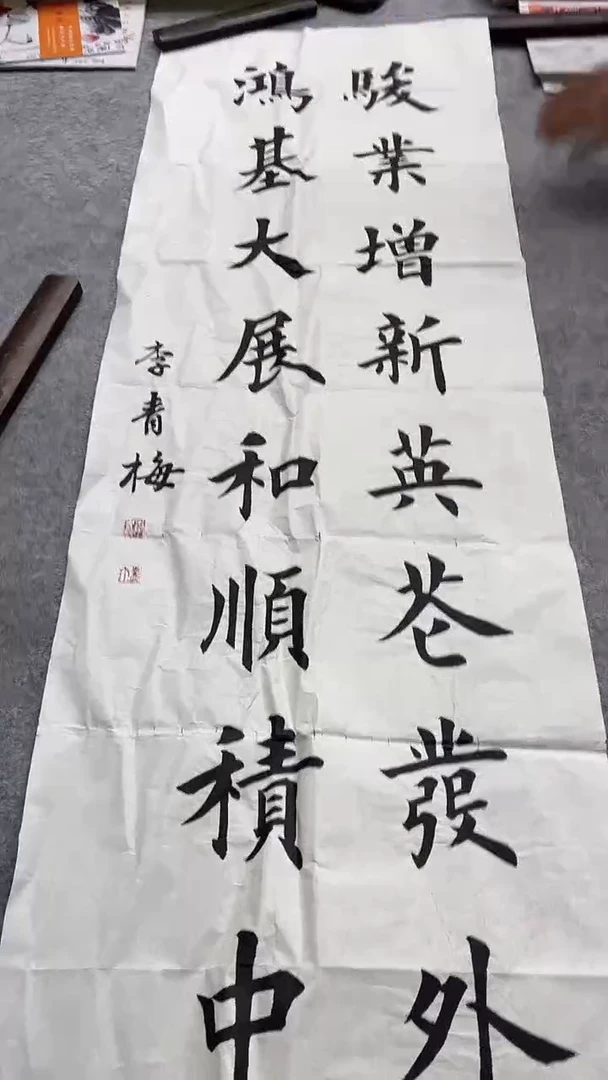 駿業增新英芲發外
鴻基大展和順積中
李青梅